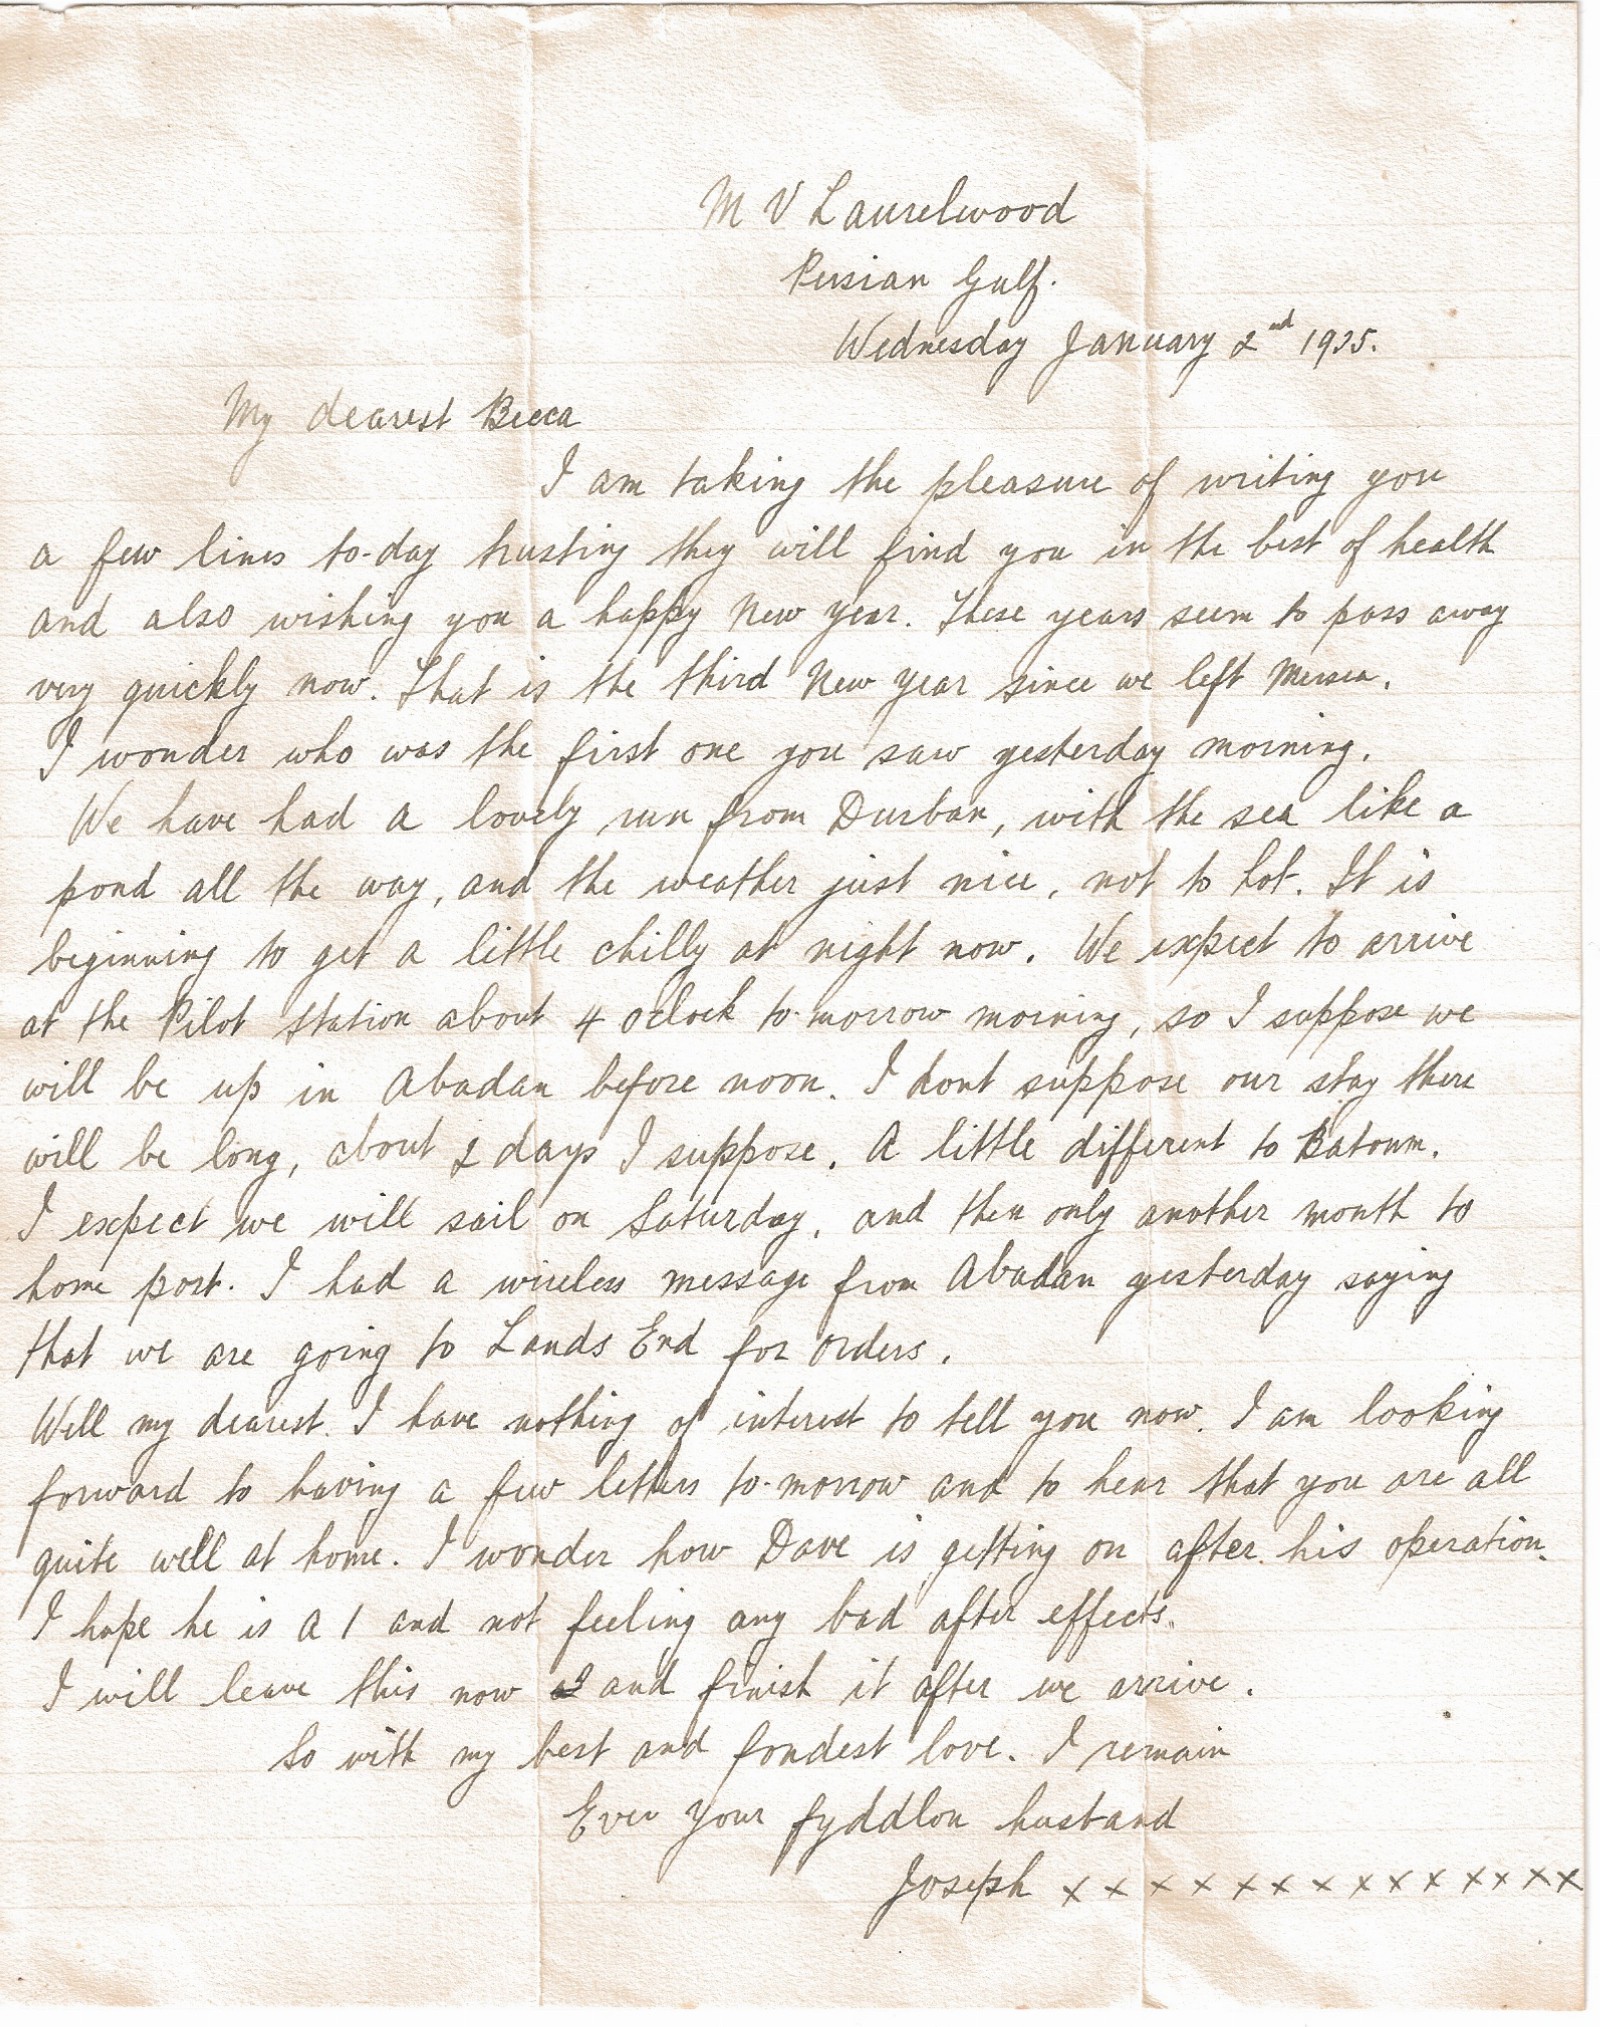 M V Laurelwood
Persian Gulf.
Wednesday January 2nd 1935.
My dearest Becca
I am taking the pleasure of writing you
a few lines to-day trusting they will find you in the best of health
and also wishing you a happy New Year. These years seem to pass away
very quickly now. That is the third New Year since we left Mersea.
I wonder who was the first one you saw yesterday morning.
We have had a lovely run from Durban, with the sea like a
pond all the way, and the weather just nice, not to hot. It is
beginning to get a little chilly at night now. We expect to arrive
at the Pilot Station about 4 oclock to-morrow morning, so I suppose we
will be up in Abadan before noon. I dont suppose our stay there
will be long, about 2 days I suppose. A little different to Batoum.
I expect we will sail on Saturday, and then only another month to
home port. I had a wireless message from Abadan yesterday saying
that we are going to Lands End for orders.
Well my dearest. I have nothing of interest to tell you now. I am looking
forward to having a few letters to-morrow and to hear that you are all
quite well at home. I wonder how Dave is getting on after his operation.
I hope he is A 1 and not feeling any bad after effects.
I will leave this now and finish it after we arrive.
So with my best and fondest love. I remain
Ever your fyddlon husband
Joseph x x x x x x x x x x x x x x